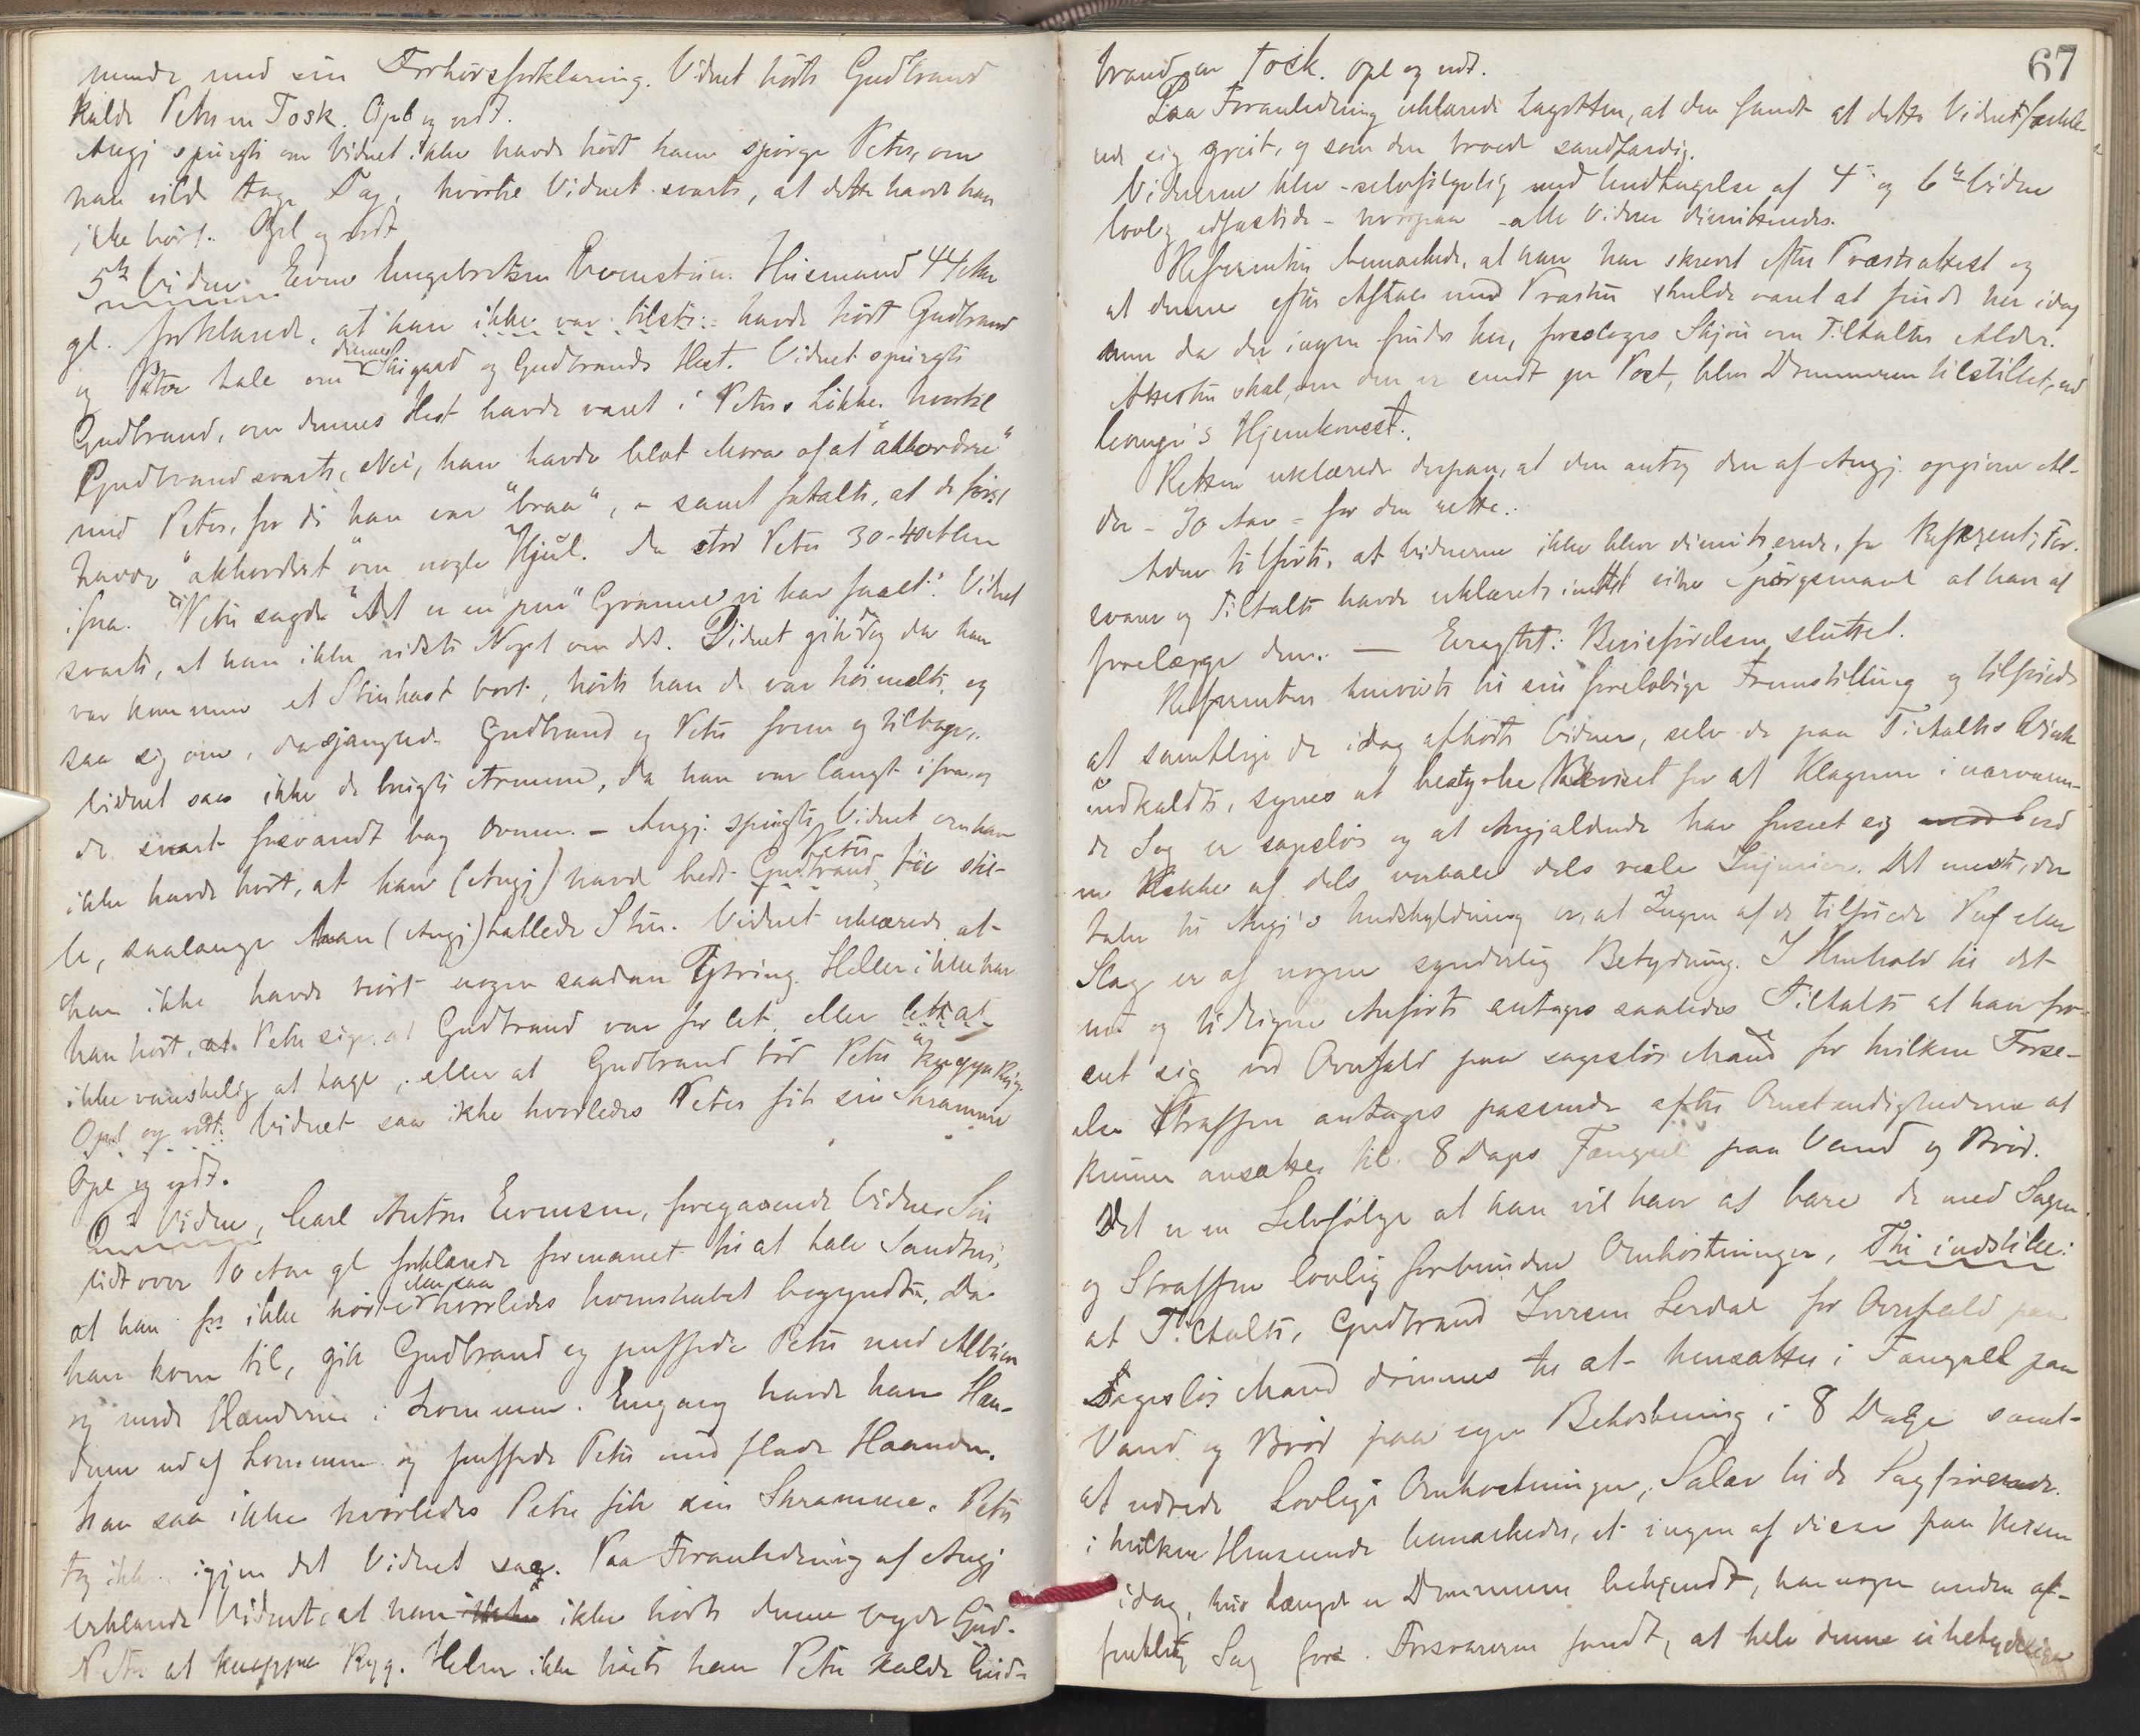 mende med sin Forhørsforklaring. Vidnet hørte Gudbrand
kalde Peter en Tosk. Opl og vedt.
Angj spurgte om Vidnet ikke havde hørt ham spørge Peter, om
han vilde tage Tag, hvortil Vidnet svarte, at dette havde han
ikke hørt. Opl og vedt
5te Vidne. Even Engebretsen Huusmand 44 Aar
gl. forklarede, at han ikke var tilst: havde hørt Gudbrand
og Peter tale om dennes Skigard og Gudbrands Hest. Vidnet spurgte
Gudbrand, om dennes Hest havde været i Peters Løkke hvortil
Gudbrand svarte, Nei, han havde blot Moro af at "akkordere"
med Peter, for di han var "braa", – samt fortalte, at de først
havde "akkorderet" om nogle Hjul. Da stod Peter 30-40 Alen
ifra. Peter sagde "Det er en pen" Granne vi har faaet". Vidnet
svarte, at han ikke vidste Noget om det. Vidnet gik dog da han
var kommen et Stenkast bort, hørte han de var høimælte, og
saa sig om, da sjanglede Gudbrand og Peter frem og tilbage.
Vidnet saa ikke de brugte Armene, da han var langt ifra, og
de snart forsvandt bag Ovnen. – Angj. spurgte Vidnet om han
ikke havde hørt, at han (Angj) havde bedt Gudbrand Peter tie stil-
le, saalænge han (Angj) kallede Sten. Vidnet erklærede at
han ikke havde hørt nogen saadan Ytring. Heller ikke har
han hørt, at Peter sige at Gudbrand var for let eller let at
ikke vanskelig at tage, eller at Gudbrand bød Peter "knæppe Ryg"
Opl og vedt. Vidnet saa ikke hvorledes Peter fik sin Skramme
Opl og vedt.
6te Vidne, Carl Anton Evensen, foregaaende Vidnes Søn
lidt over 10 Aar gl forklarede formanet til at tale Sandhed,
at han ikke hørte eller saa hvorledes Kornskabet begyndte. Da
han kom til, gik Gudbrand og puffede Peter med Albuen
og med Hænderne i Lommen. Engang havde han Hæn-
derne ud af Lommen og puffede Peter med flade Haanden.
Han saa ikke hvorledes Peter fik sin Skramme. Peter
tog ikke igjen det Vidnet saa. Paa Foranledning af Angj
erklærede Vidnet, at han ikke hørte denne byde Gud-
Peter at knæppe Ryg. Heller ikke hørte han Peter kalde Gud-
67
brand en Tosk. Opl og vedt.
Paa Foranledning erklærede Lagretten, at den fandt at dette Vidnet forkla-
rede sig greit, og som den troede sandfærdig.
Vidnerne blev – selvfølgelig med Undtagelse af 4de og 6te Vidne
lovlig edfæstede – hvorpaa alle Vidner dimitteredes.
Referenten bemærkede, at han har skrevet efter Præsteattest og
at denne efter Aftale med Præsten skulde været at finde her idag
men da der ingen findes her, foreslaages Skjøn om Tiltaltes Alder.
Attesten skal, om den er sendt pr Post, blive Dommeren tilstillet, ved
Hjemkomst.
Retten erklærede derpaa, at den antog den af Angj. opgivne Al-
der – 30 Aar – for den rette.
Anm tilføres, at Vidnerne ikke blev dimitterede, før Referent, For-
svarer og Tiltalte havde erklæret intet videre Spørgsmaal at have at
forelægge dem. — Eragtet: Bevisførelsen sluttet.
Referenten henviste til sin foreløbige Fremstilling og tilføiede
at samtlige de idag afhørte Vidner, selv de paa Tiltaltes Vink
indkaldte, synes at bestyrke Beviset for at Klageren i nærværen-
de Sag er sagesløs og at Angjældende har forseet sig ved
en Række af dels verbale dels reale Injurier. Det meste, der
taler til Angj's Undskyldning er, at Ingen af de tilføiede Puf eller
Slag er af nogen synderlig Betydning. I Henhold til det
nu og tidligere Anførte antages saaledes Tiltalte at have for-
seet sig ved Overfald paa sagesløs Mand for hvilken Forse-
else Straffen antages passende efter Omstændighederne at
kunne ansættes til 8 Dages Fængsel paa Vand og Brød.
Det er en Selvfølge at han vil have at bære de med Sagen
og Straffen lovlig forbundne Omkostninger, Thi indstilles:
at Tiltalte, Gudbrand Iversen Lerdal for Overfald paa
Sagesløs Mand dømmes til at hensættes i Fængsel paa
Vand og Brød paa egen Bekostning i 8 Dage samt
at udrede lovlige Omkostninger, Salær til de Sagførende.
i hvilken Henseende bemærkedes, at ingen af disse paa Reisen
idag, hvis Længde er Dommeren bekjendt, har nogen anden of-
fentlig Sag fore. Forsvareren fandt, at hele denne ubetydelige